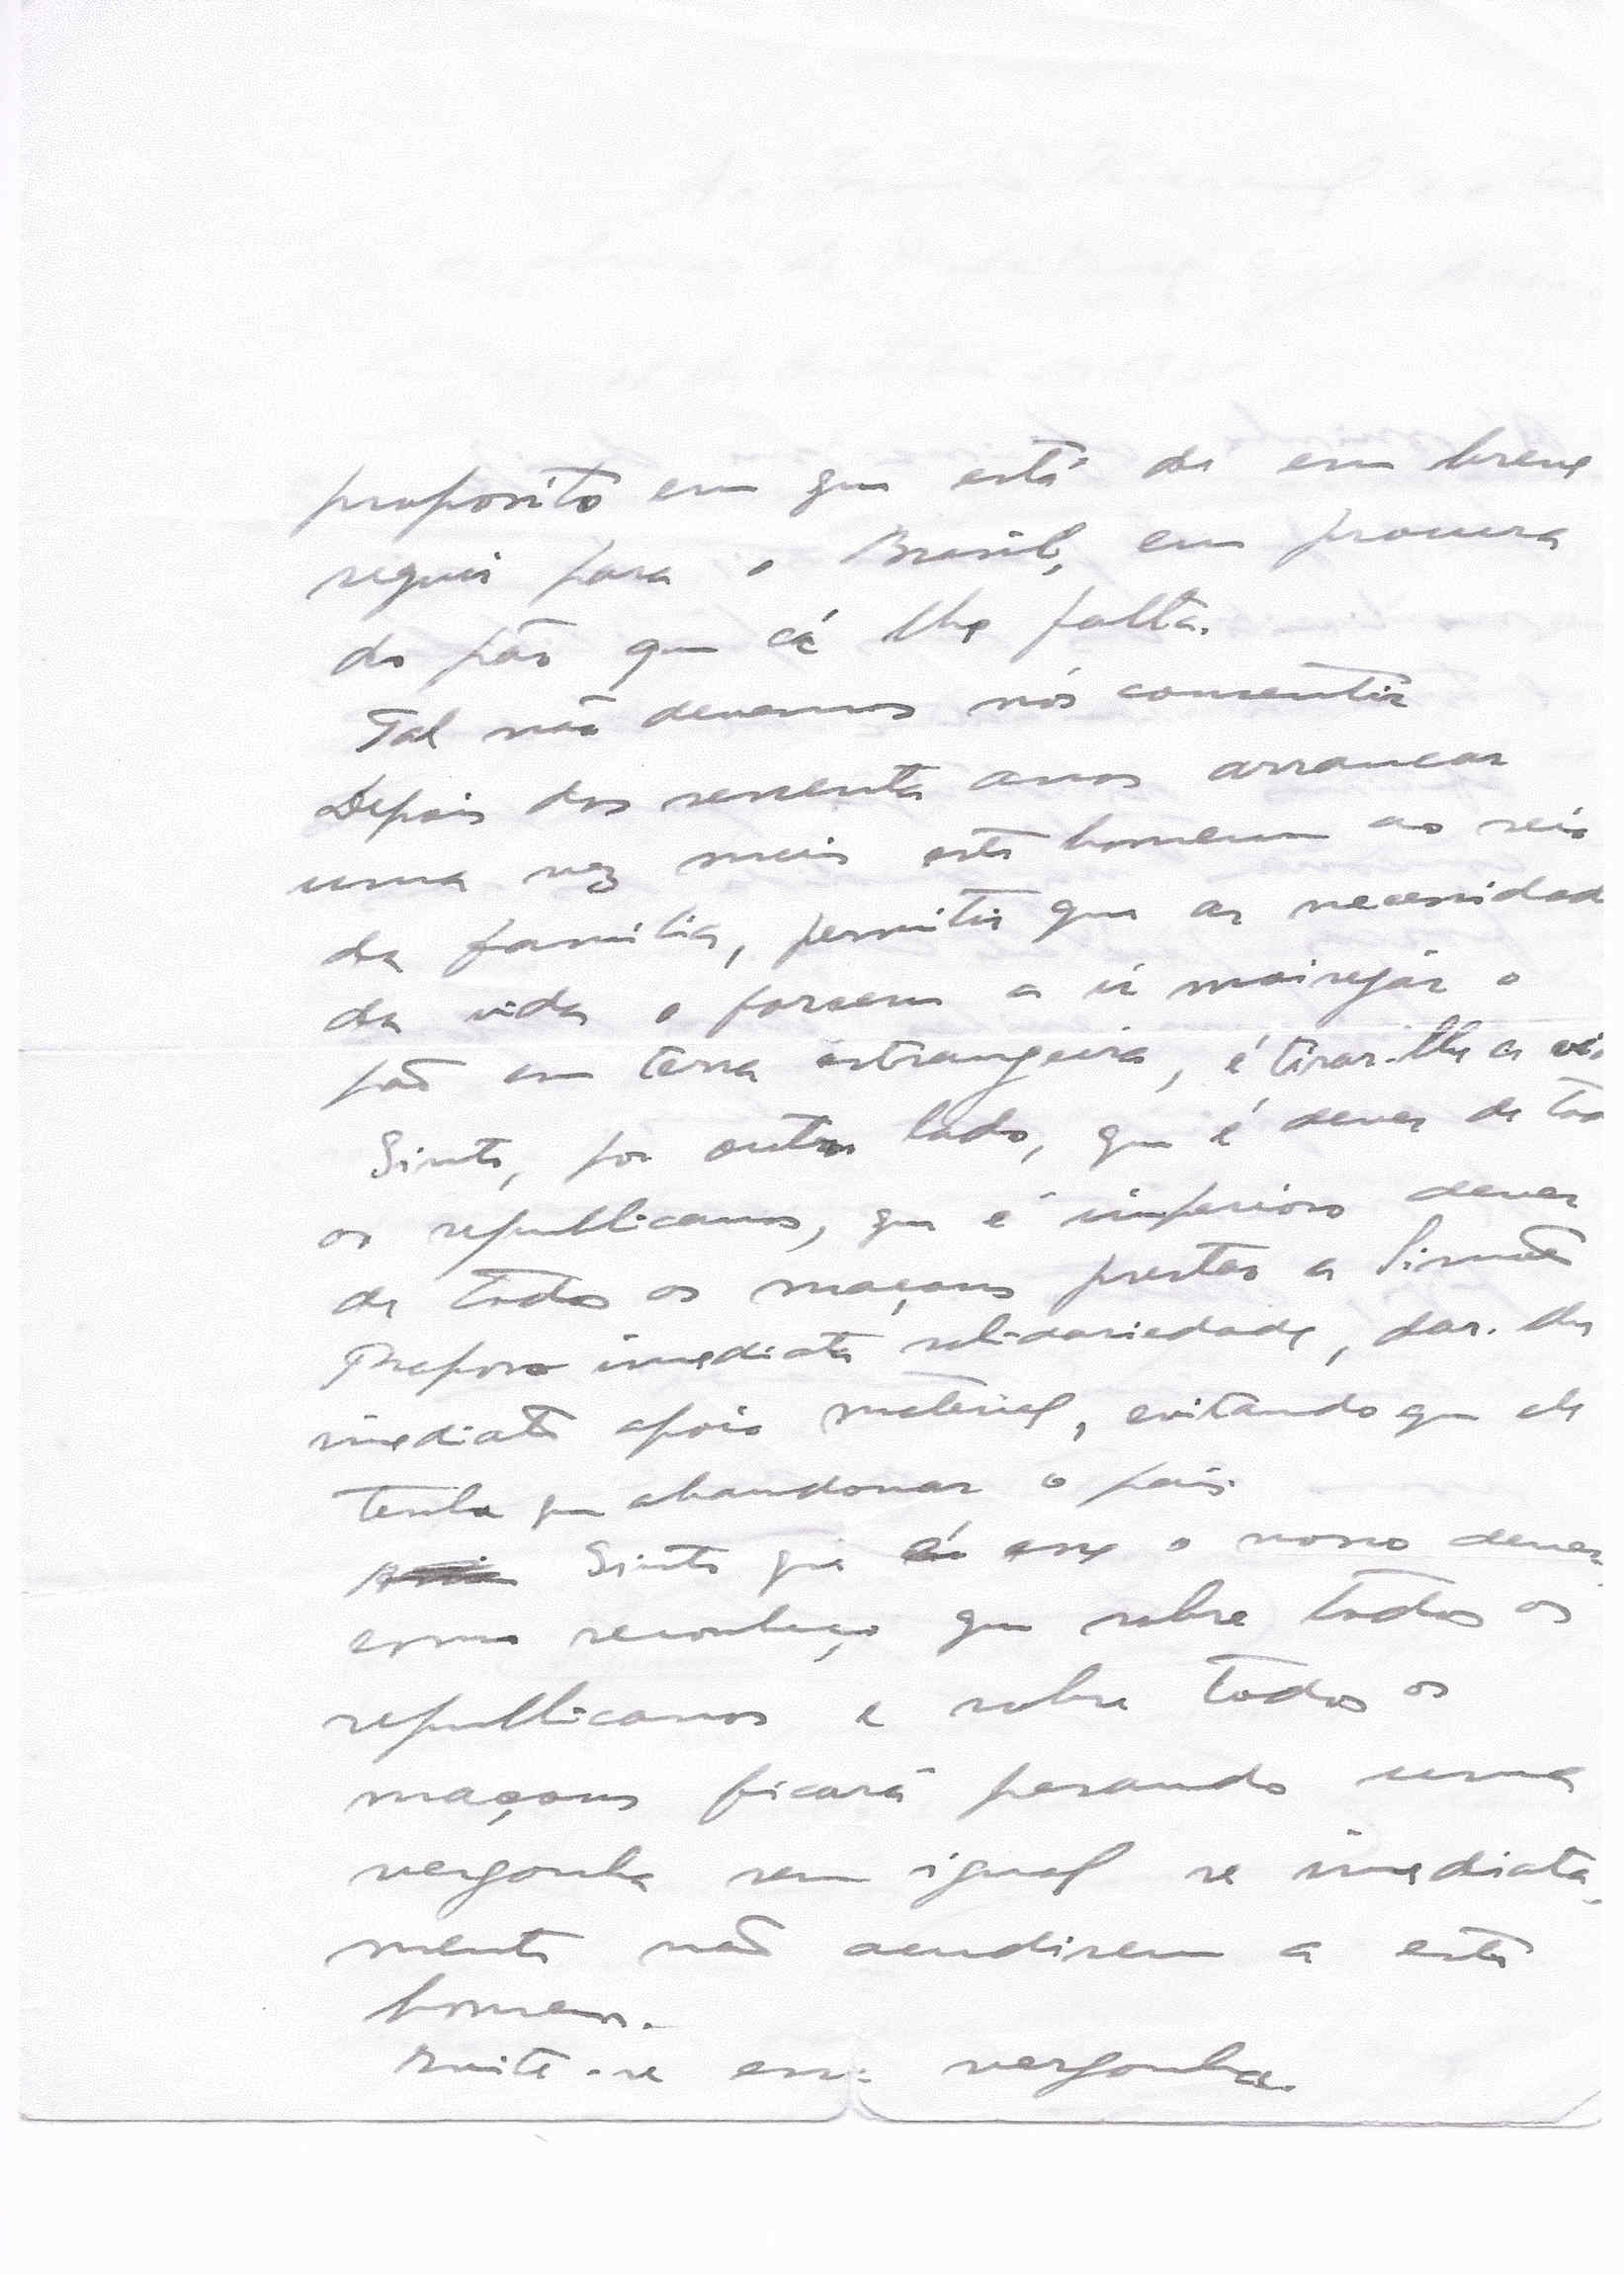 proposito em que está de em breve
seguir para o Brasil, em procura
do pão que cá lhe falta.
Tal não devemos nós consentir
Depois dos sessenta anos arrancar
uma vez mais este homem ao seio
da familia, permitir que as necessidad
da vida o forcem a ir moirejár o
pão em terra estrangeira, é tirar-lhe a vi
Sinto, por outro lado, que é dever de tod
os republicanos, que é imperioso dever
de todos os maçons prestar a Simões
Raposo imediata solidariedade, dar-lhe
imediato apoio material, evitando que ele
tenha que abandonar o país.
Sinto que é esse o nosso dever,
como reconheço que sobre todos os
republicanos e sobre todos os
maçons ficará pesando uma
vergonha sem igual se imediata-
mente não acudirem a este
homem.
Evite-se essa vergonha.